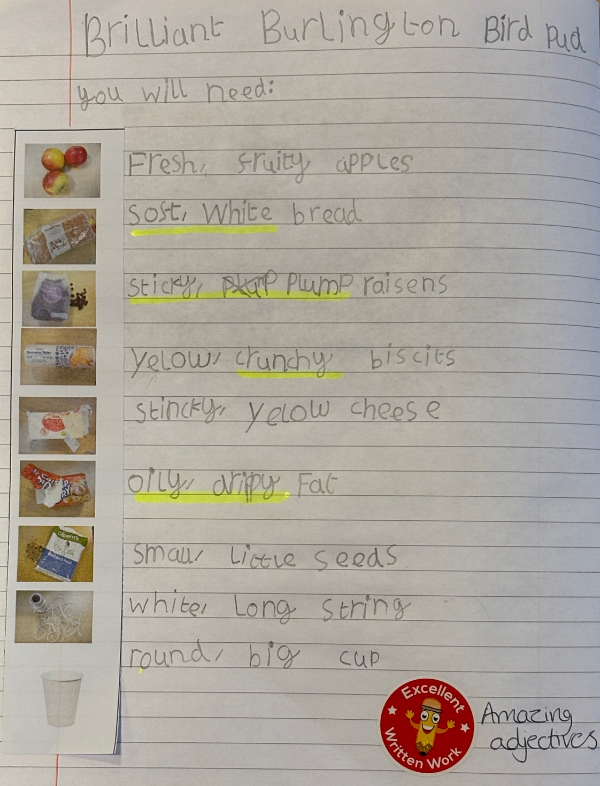 Brilliant Burlington Bird pud
you will need:
Fresh, fruity apples
soft, white bread
sticky, plump raisens
yelow, crunchy biscits
stincky, yelow cheese
oily, dripy Fat
small, little seeds
white, long string
round, big cup
Excellent
Written Work
Amazing
adjectives